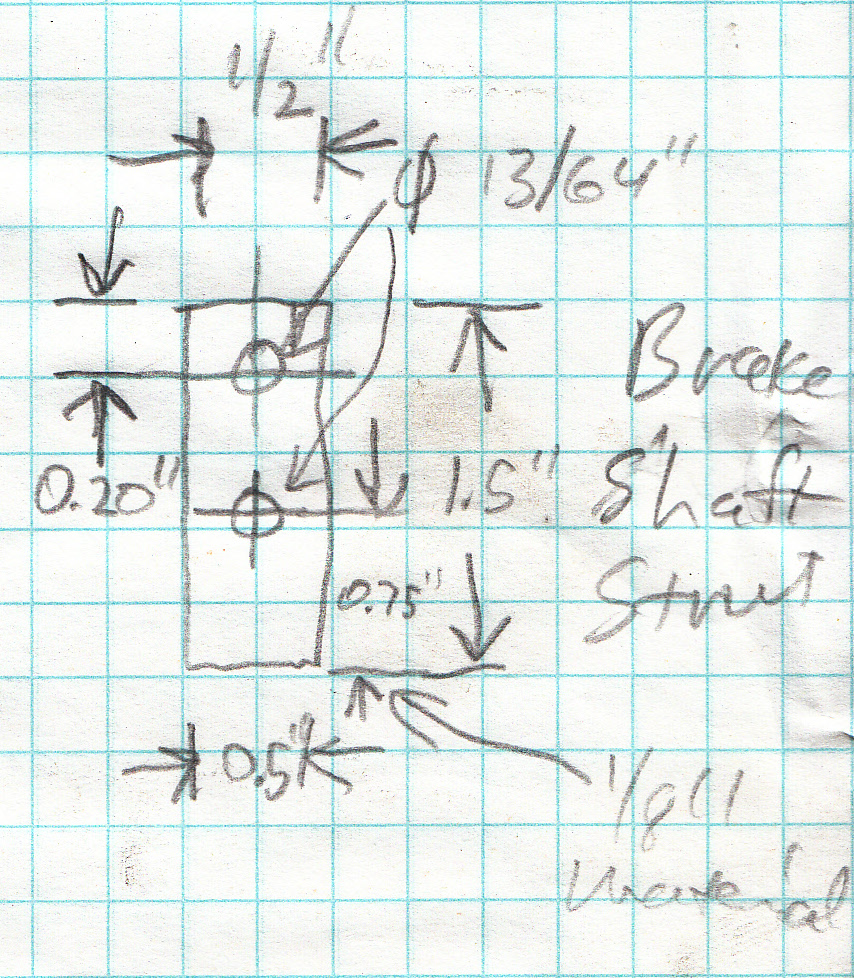 1/2"
ϕ 13/64"
0.20"
1.5"
Brake
Shaft
Strut
0.75"
0.5"
1/8"
Material